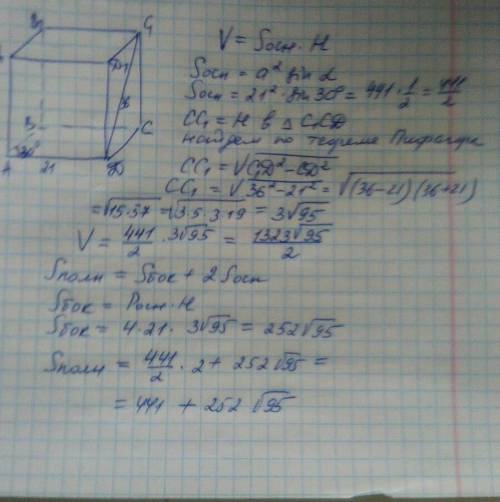 B₁ C₁
V = Sосн · H
A₁ D₁
Sосн = a² sin α
Sосн = 21² · sin 30° = 441 · 1/2 = 441/2
36
CC₁ = H в Δ C₁CD
B C
найдем по теореме Пифагора
30°
A 21 D
CC₁ = √C₁D² - CD²
CC₁ = √36² - 21² = √(36-21)(36+21)
= √15·57 = √3·5·3·19 = 3√95
V = 441/2 · 3√95 = 1323√95/2
Sполн = Sбок + 2Sосн
Sбок = Pосн · H
Sбок = 4 · 21 · 3√95 = 252√95
Sполн = 441/2 · 2 + 252√95 =
= 441 + 252√95